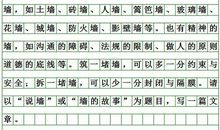 墙，如土墙、砖墙、人墙、篱笆墙、玻璃墙、
花墙、城墙、防火墙、影壁墙等。也有精神的
墙，如沟通的障碍、法规的限制、做人的原则、
道德的底线等。筑一堵墙，可以多一分约束与
安全；拆一堵墙，可以少一分封闭与隔膜。请
以“说墙”或“墙的故事”为题目，写一篇文
章。